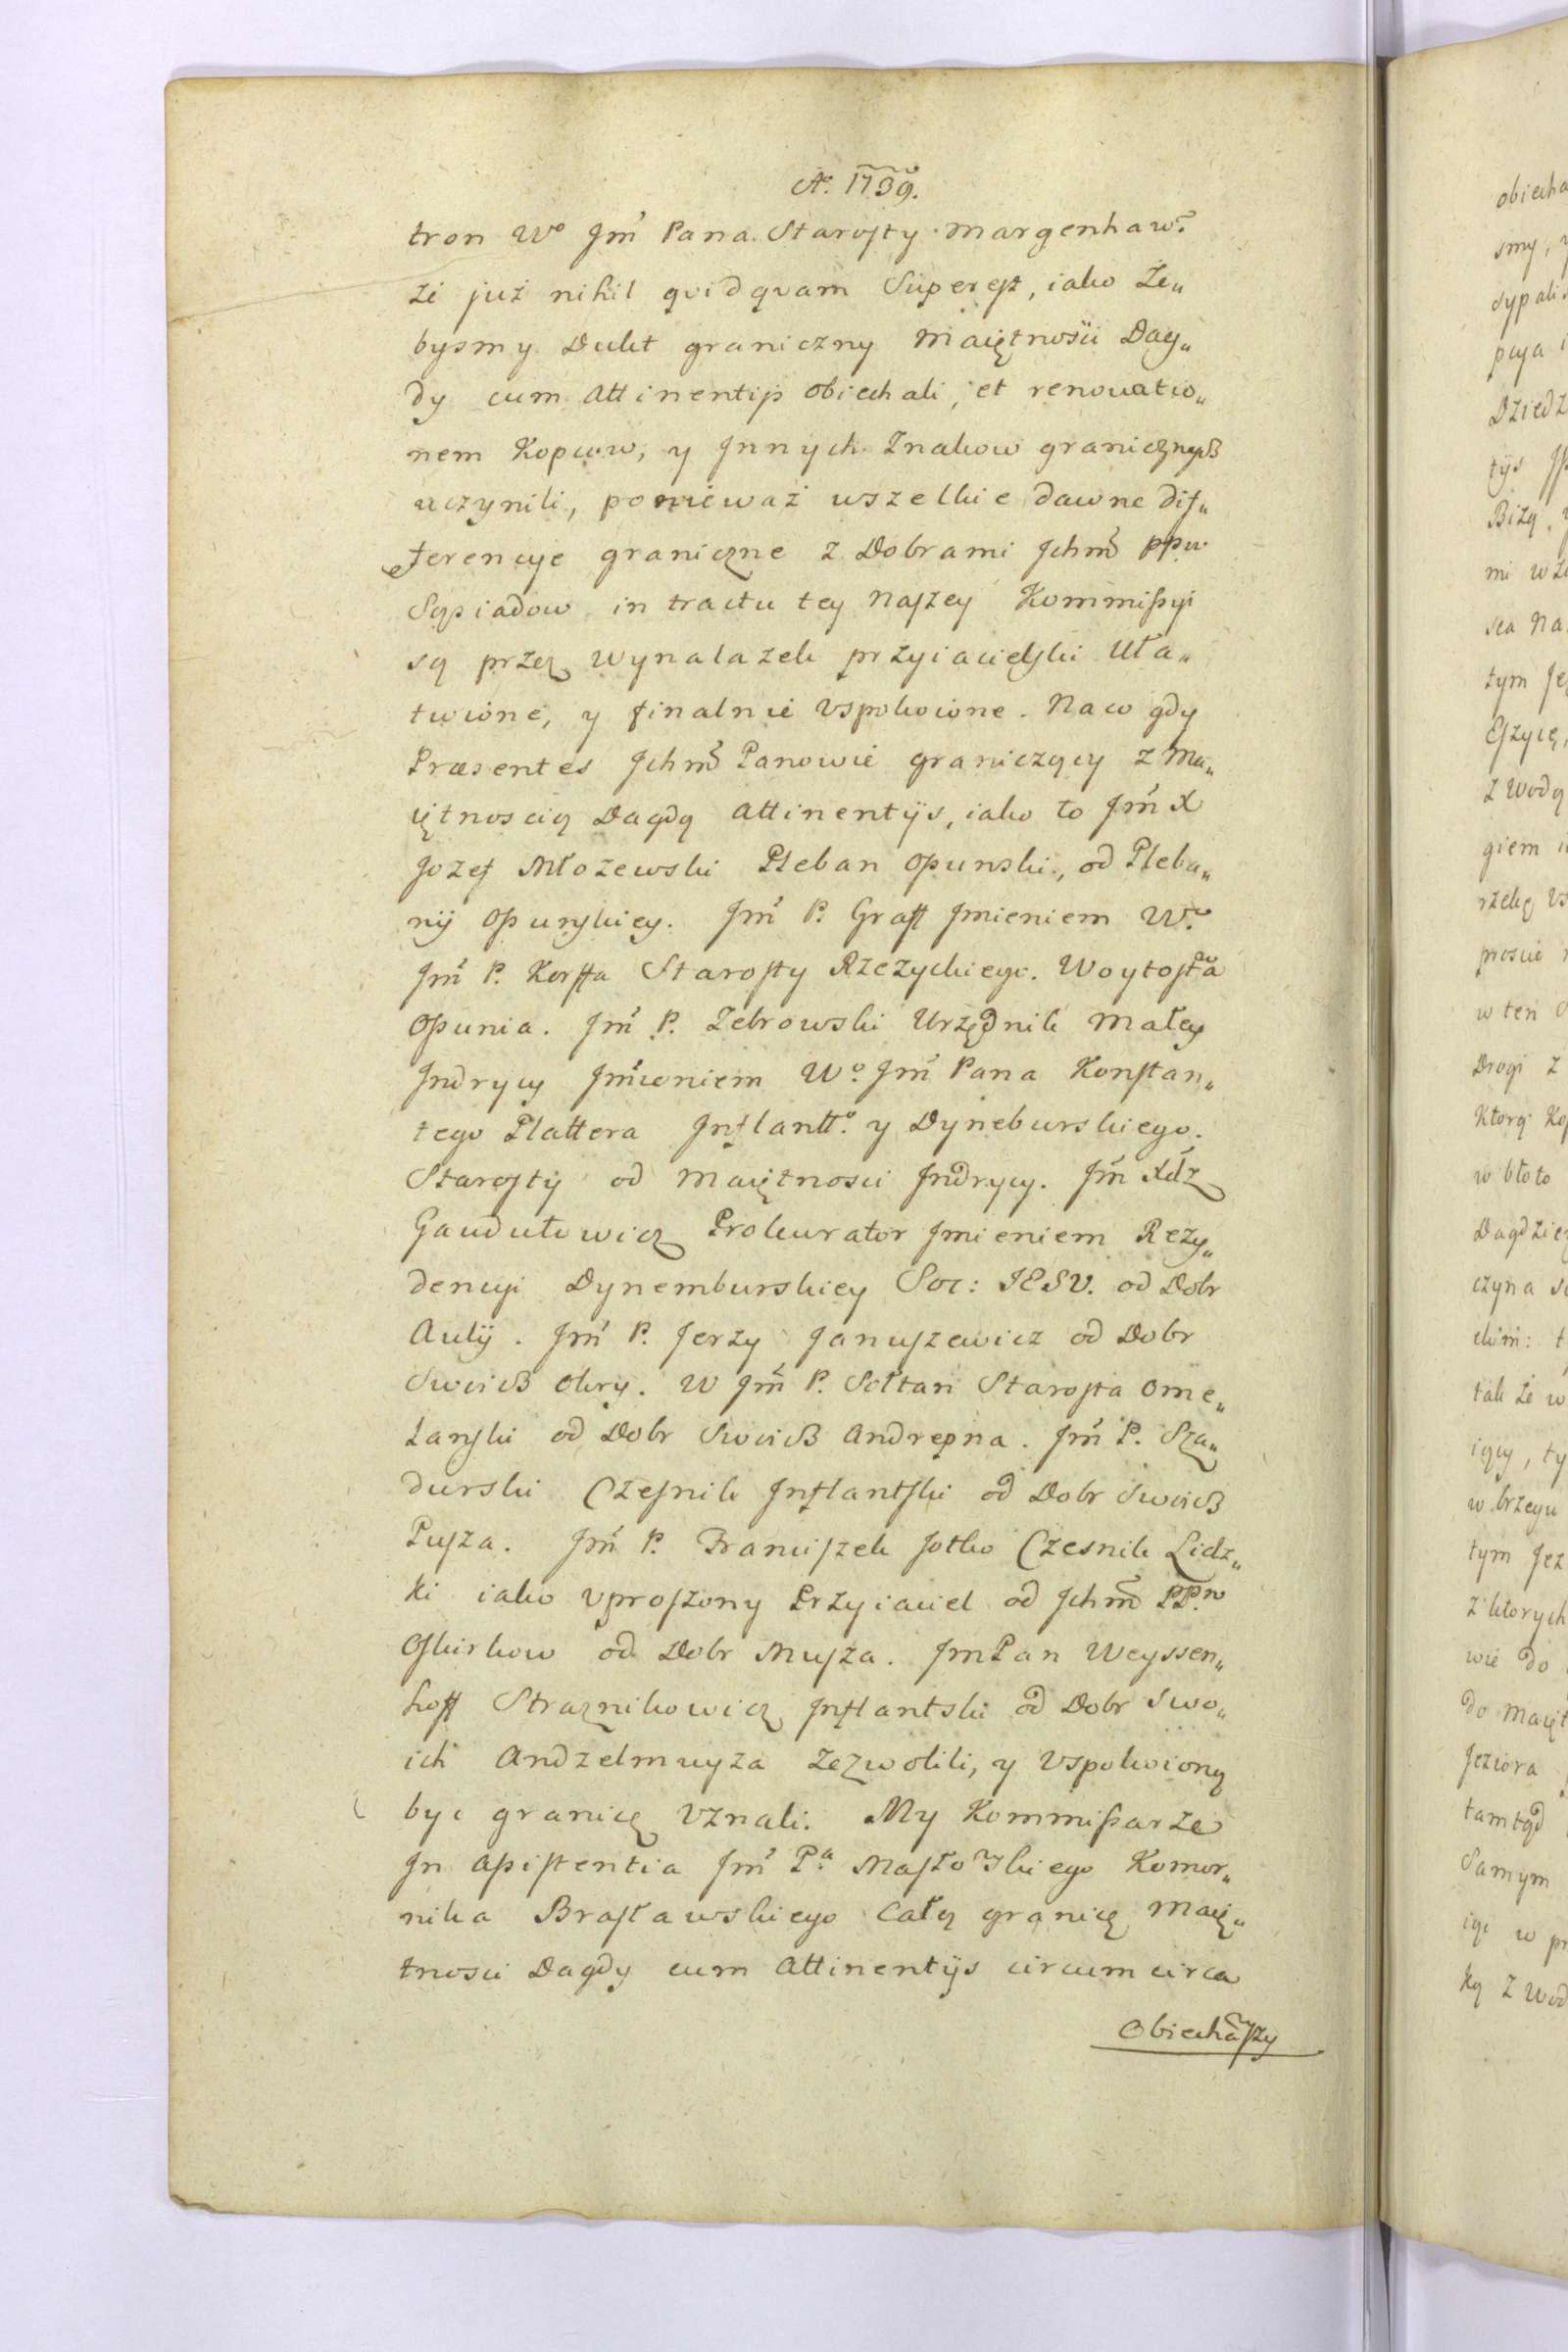 Ao. 1739.
tron Wo Jm̃ Pana Starosty Margenhaw:
że już nihil qvidqvam Superest, iako że„
bysmy Dukt graniczny Maiętności Dag„
dy cum Attinentijs obiechali, et renovatio„
nem Kopcow, y Jnnych Znakow granicznych
uczynili, ponieważ wszelkie dawne dif„
ferencye graniczne z Dobrami Jchm̃ PPw
Sąsiadow in tractu tey Naszey Kommissyi
są przez wynalazek przyiacielski Uła„
twione, y finalnie Vspokoione. Na co gdy
Præsentes Jchm̃ Panowie graniczący z Ma„
iętnoscią Dagdą Attinentijs, iako to Jm̃ X
Jozef Młożewski Pleban Ossunski, od Pleba„
nij Ossunskiey. Jm̃ P. Graff Jmieniem Wo
Jm̃ P. Korffa Starosty Rzeżyckiego. Woytostwa
Ossunia. Jm̃ P. Żebrowski Urzędnik Małey
Jndrycy Jmieniem Wo Jm̃ Pana Konstan„
tego Plattera Jnflantto. y Dyneburskiego
Starosty od Maiętnosci Jndrycy. Jm̃ Xdz
Gaudutowicz Prokurator Jmieniem Rezy„
dencyi Dynemburskiey Soc: JESV. od Dobr
Aulij. Jm̃ P. Jerzy Januszewicz od Dobr
Swoich Okry. W Jm̃ P. Sołtan Starosta Ome„
lanski od Dobr Swoich Andrepna. Jm̃ P. Sza„
durski Czesnik Jnflantski od Dobr Swoich
Pusza. Jm̃ P. Franciszek Jotko Czesnik Lidz„
ki iako Vproszony Przyiaciel od Jchm̃ PPw
Oskirkow od Dobr Muyza. Jm Pan Weyssen„
hoff Straznikowicz Jnflantski od Dobr Swo„
ich Andzelmuyza zezwolili, y Vspokoioną
byc granicę Vznali. My Kommissarze
Jn Assistentia Jm̃ Pa Masłowskiego Komor„
nika Brasławskiego Całą granicę Maię„
tnosci Dagdy cum Attinentijs circum circa
Obiechawszy